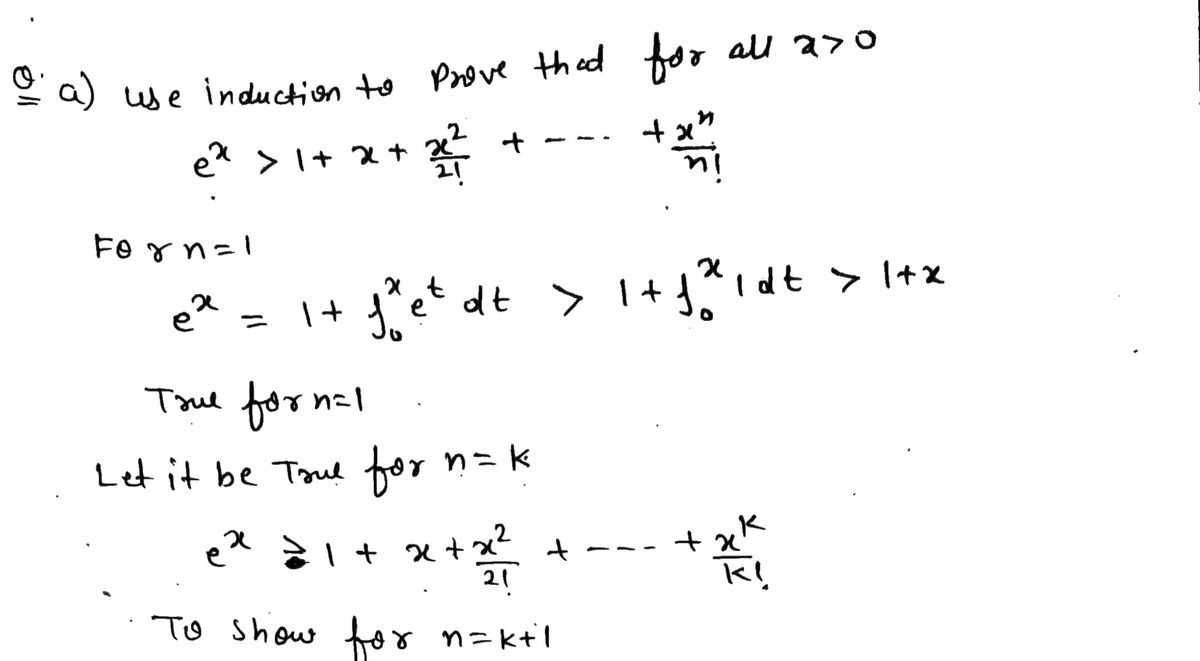 Q. a) use induction to Prove that for all x>0
e^x > 1 + x + x^2/2! + ---- + x^n/n!
For n=1
e^x = 1 + ∫_0^x e^t dt > 1 + ∫_0^x 1 dt > 1+x
True for n=1
Let it be True for n=k
e^x ≥ 1 + x + x^2/2! + --- + x^k/k!
To show for n=k+1